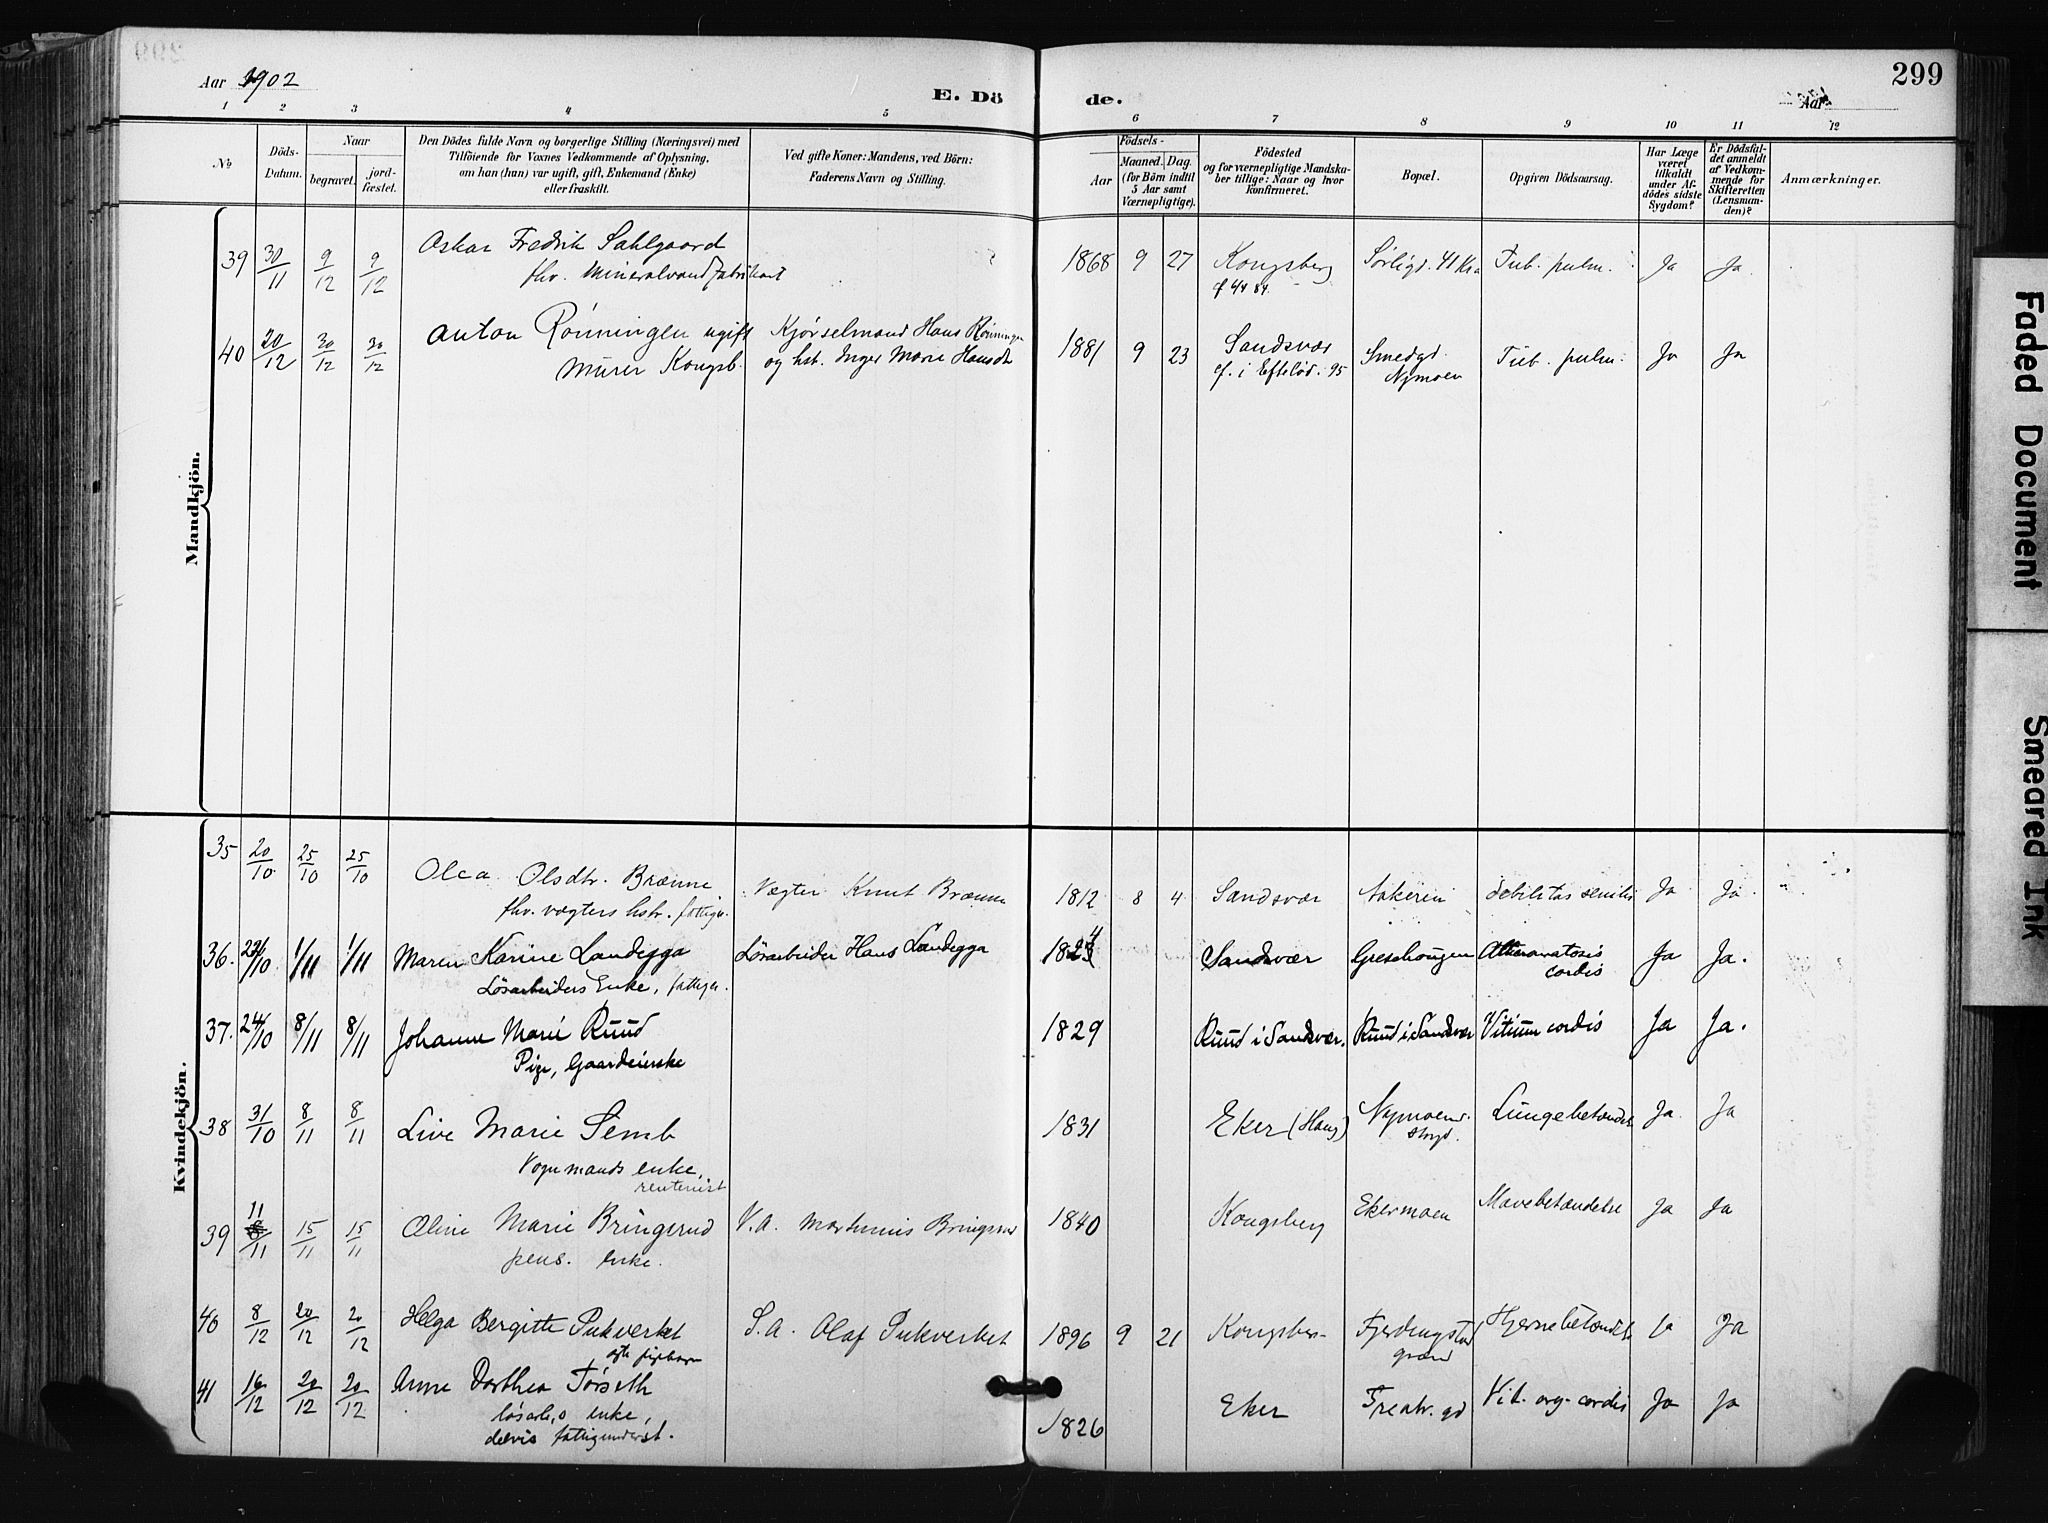 299
Aar 1902
E. Dö
de.
Aar
1 2 3 4 5 6 7 8 9 10 11 12
No
Döds-
Datum.
Naar
begravet.
jord-
fæstet.
Den Dödes fulde Navn og borgerlige Stilling (Næringsvei) med
Tilföiende for Voxnes Vedkommende af Oplysning,
om han (hun) var ugift, gift, Enkemand (Enke)
eller fraskilt.
Ved gifte Koner: Mandens, ved Börn:
Faderens Navn og Stilling.
Födsels-
Aar
Maaned.
Dag.
(for Börn indtil
5 Aar samt
Værnepligtige).
Födested
og for værnepligtige Mandska-
ber tillige: Naar og hvor
konfirmeret.
Bopæl.
Opgiven Dödsaarsag.
Har Læge
været
tilkaldt
under Af-
dödes sidste
Sygdom?
Er Dödsfal-
det anmeldt
af Vedkom-
mende for
Skifteretten
(Lensman-
den)?
Anmærkninger.
Mandkjön.
39 30/11 9/12 9/12 Oskar Fredrik Sahlgaard ? 1868 9 27 Kongsberg Tub. pulm. Ja Ja
fhv. Mineralvandfabrikant
40 20/12 30/12 30/12 Anton Rönningen ugift Kjørselmand Hans Rönningen 1881 9 23 Sandsvær Smedgd. Tub. pulm. Ja Ja
Murer Kongsb. og hst. Inger Marie Hansdtr cf. i Efteløt. 95 Nymoen
Kvindekjön.
35 20/10 25/10 25/10 Olea Olsdtr. Brænne Vægter Knut Brænne 1812 8 4 Sandsvær debilitas senilis Ja Ja
fhv. vægters hstr. fattigu.
36. 10 1/11 1/11 Maren Karine Landegga Løsarbeider Hans Landegga 1824 Sandsvær Greshougen Atheromatosis Ja Ja.
cordis
Løsarbeiders Enke, fattigu.
37. 24/10 8/11 8/11 Johanne Marie Ruud 1829 Ruud i Sandsvær. Ruud i Sandsvær Vitium cordis Ja Ja.
Pige, Gaardeierske
38 31/10 8/11 8/11 Live Marie Semb 1831 Eker (Haug) Lungebetændelse Ja Ja
Vognmands enke,
rentenist
39 11/11 15/11 15/11 Oline Marie Bringsrud V.A. Marthinius Bringsrud 1840 Kongsberg Ekermoen Mavebetændelse Ja Ja
pens. enke.
40 8/12 20/12 20/12 Helga Bergitte Pukverket S.A. Olaf Pukverket 1896 9 21 Kongsberg Hjernebetændelse Ja Ja
41 16/12 20/12 20/12 Anne Dorthea Torseth 1826 Eker Vit. org. cordis Ja Ja
løsarb.s enke,
delvis fattigunderst.
Faded Document
Smeared Ink